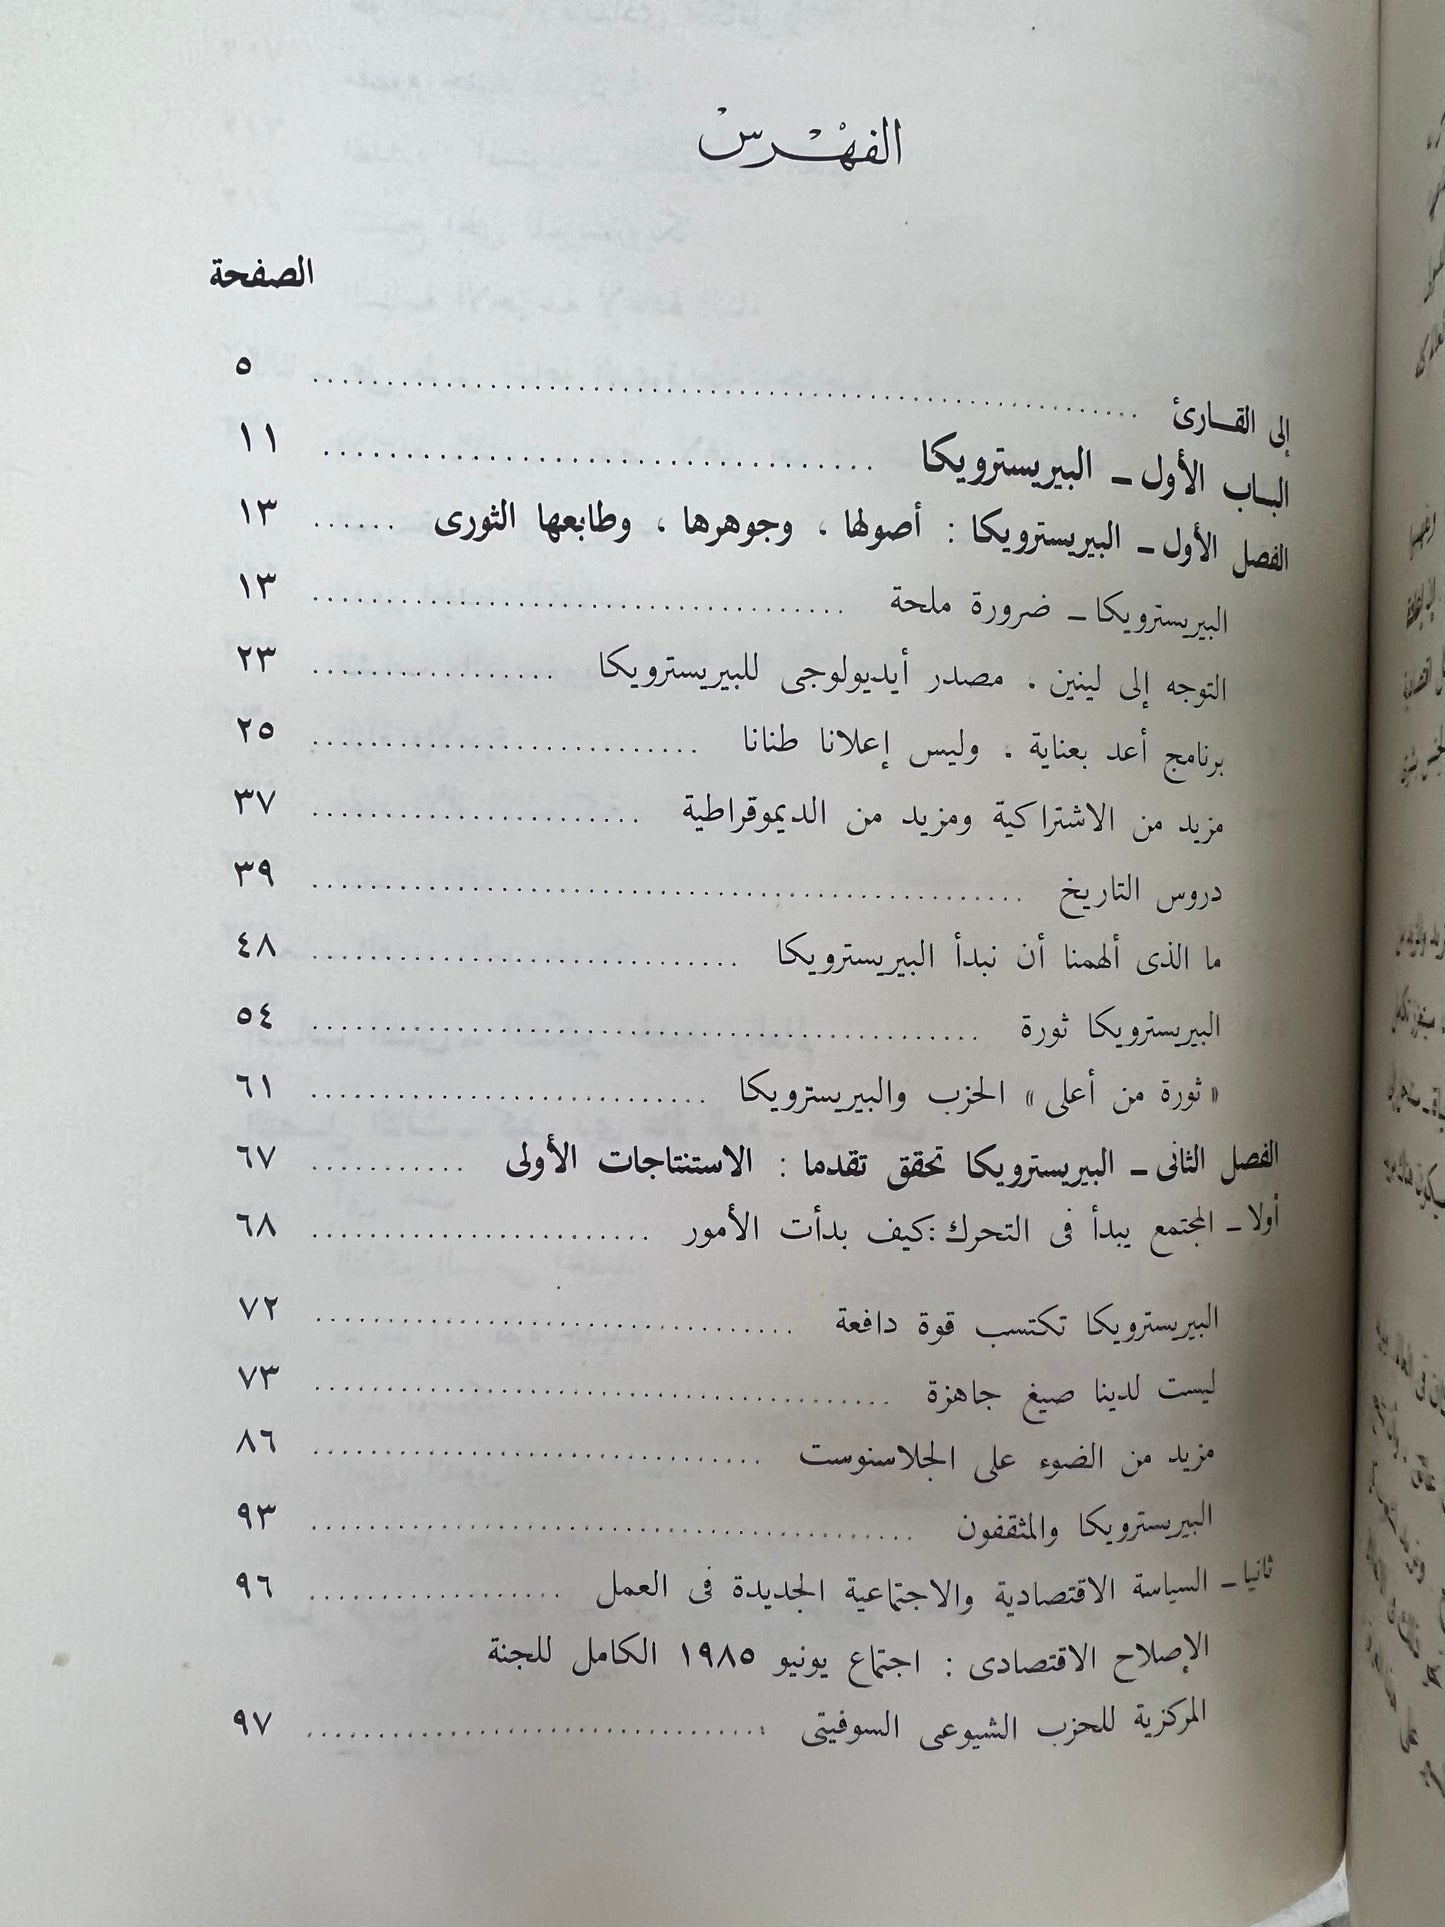 الفهْرسْ
الصفحة
إلى القارئ ........ ٥
الباب الأول ـ البيريسترويكا ........ ١١
الفصل الأول ـ البيريسترويكا : أصولها ، وجوهرها ، وطابعها الثورى ...... ١٣
البيريسترويكا ـ ضرورة ملحة ........ ١٣
التوجه إلى لينين ، مصدر أيديولوجى للبيريسترويكا ........ ٢٣
برنامج أعد بعناية ، وليس إعلانا طنانا ........ ٢٥
مزيد من الاشتراكية ومزيد من الديموقراطية ........ ٣٧
دروس التاريخ ........ ٣٩
ما الذى ألهمنا أن نبدأ البيريسترويكا ........ ٤٨
البيريسترويكا ثورة ........ ٥٤
« ثورة من أعلى » الحزب والبيريسترويكا ........ ٦١
الفصل الثانى ـ البيريسترويكا تحقق تقدما : الاستنتاجات الأولى ........ ٦٧
أولا ـ المجتمع يبدأ فى التحرك : كيف بدأت الأمور ........ ٦٨
البيريسترويكا تكتسب قوة دافعة ........ ٧٢
ليست لدينا صيغ جاهزة ........ ٧٣
مزيد من الضوء على الجلاسنوست ........ ٨٦
البيريسترويكا والمثقفون ........ ٩٣
ثانيا ـ السياسة الاقتصادية والاجتماعية الجديدة فى العمل ........ ٩٦
الإصلاح الاقتصادى : اجتماع يونيو ١٩٨٥ الكامل للجنة
المركزية للحزب الشيوعى السوفيتى ........ ٩٧